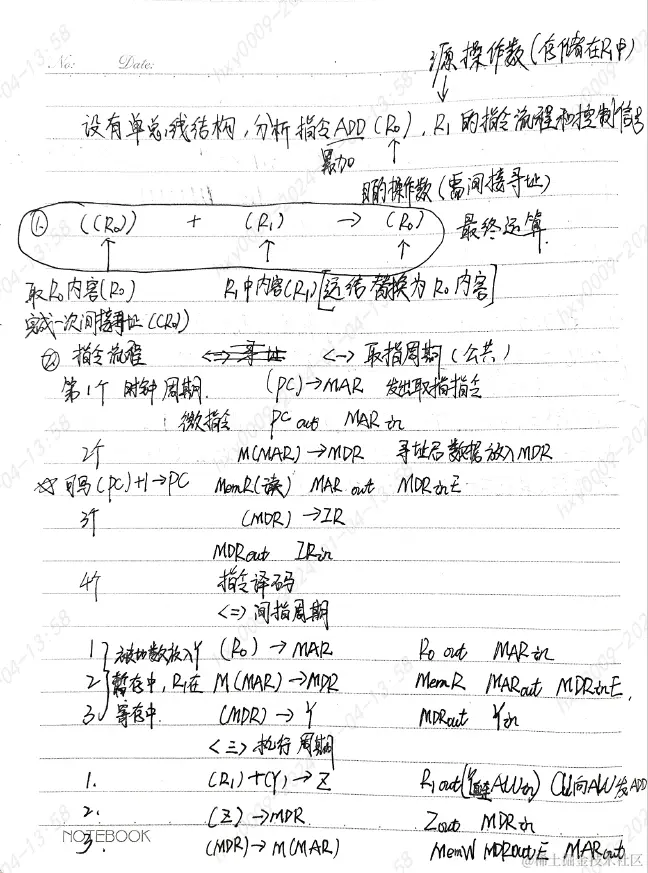 No: Date:
源操作数(存储在R₁中)
设有单总线结构,分析指令ADD (R₀), R₁的指令流程和控制信号
累加
目的操作数(需间接寻址)
1. ((R₀)) + (R₁) → (R₀) 最终运算
取R₀内容(R₀) R₁中内容(R₁) [运结替换为R₀内容]
完成一次间接寻址((R₀))
2. 指令流程 <一> 取指周期(公共)
第1个时钟周期. (PC)→MAR 发出取指指令
微指令 PCout MARin
2个 M(MAR)→MDR 寻址后数据放入MDR
(PC)+1→PC MemR(读) MARout MDRinE
3个 (MDR)→IR
MDRout IRin
4个 指令译码
<二> 间指周期
1 被加数放入Y (R₀)→MAR R₀out MARin
2 暂存中,R₁在 M(MAR)→MDR MemR MARout MDRinE,
3 寄存中. (MDR)→Y MDRout Yin
<三> 执行周期
1. (R₁)+(Y)→Z R₁out ALUin) CU向ALU发ADD
2. (Z)→MDR Zout MDRin
3. (MDR)→M(MAR) MemW MDRoutE MARout
NOTEBOOK
@稀土掘金技术社区